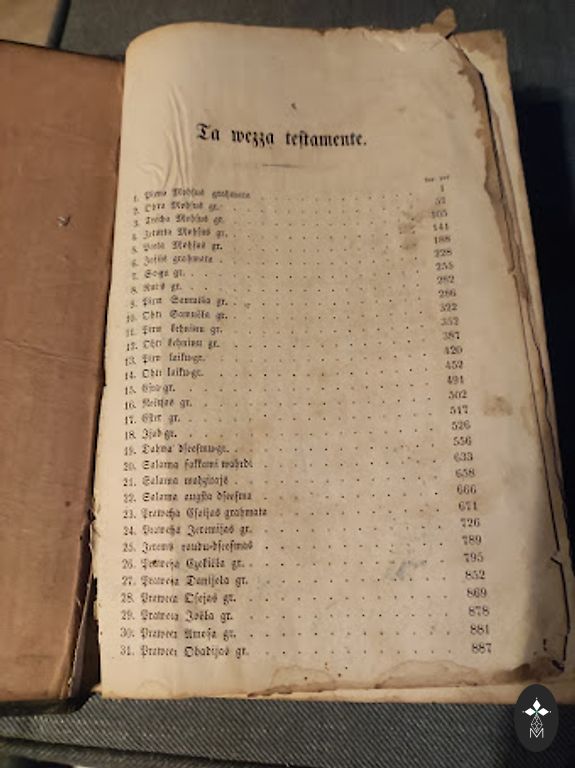 Ta wezza testamente.
1. Pirma Mohsus grahmata 1
2. Ohtra Mohsus gr. 57
3. Trescha Mohsus gr. 105
4. Zeturta Mohsus gr. 141
5. Peekta Mohsus gr. 188
6. Josuas grahmata 228
7. Soģu gr. 255
8. Ruts gr. 282
9. Pirm Samuëļa gr. 286
10. Ohtr Samuëļa gr. 322
11. Pirm ķehniņu gr. 352
12. Ohtr ķehniņu gr. 387
13. Pirm laiku-gr. 420
14. Ohtr laiku-gr. 452
15. Esras gr. 491
16. Neemijas gr. 502
17. Ester gr. 517
18. Ijab gr. 526
19. Dahwa dseesmu-gr. 556
20. Salama sakkami wahrdi 633
21. Salama mahzitajs 658
22. Salama augsta dseesma 666
23. Praweescha Esaijas grahmata 671
24. Praweescha Jeremijas gr. 726
25. Jerema raudu-dseesmas 789
26. Praweescha Ezekiëļa gr. 795
27. Praweescha Danijela gr. 852
28. Praweescha Osejas gr. 869
29. Praweescha Joëļa gr. 878
30. Praweescha Amosa gr. 881
31. Praweescha Obadijas gr. 887
M